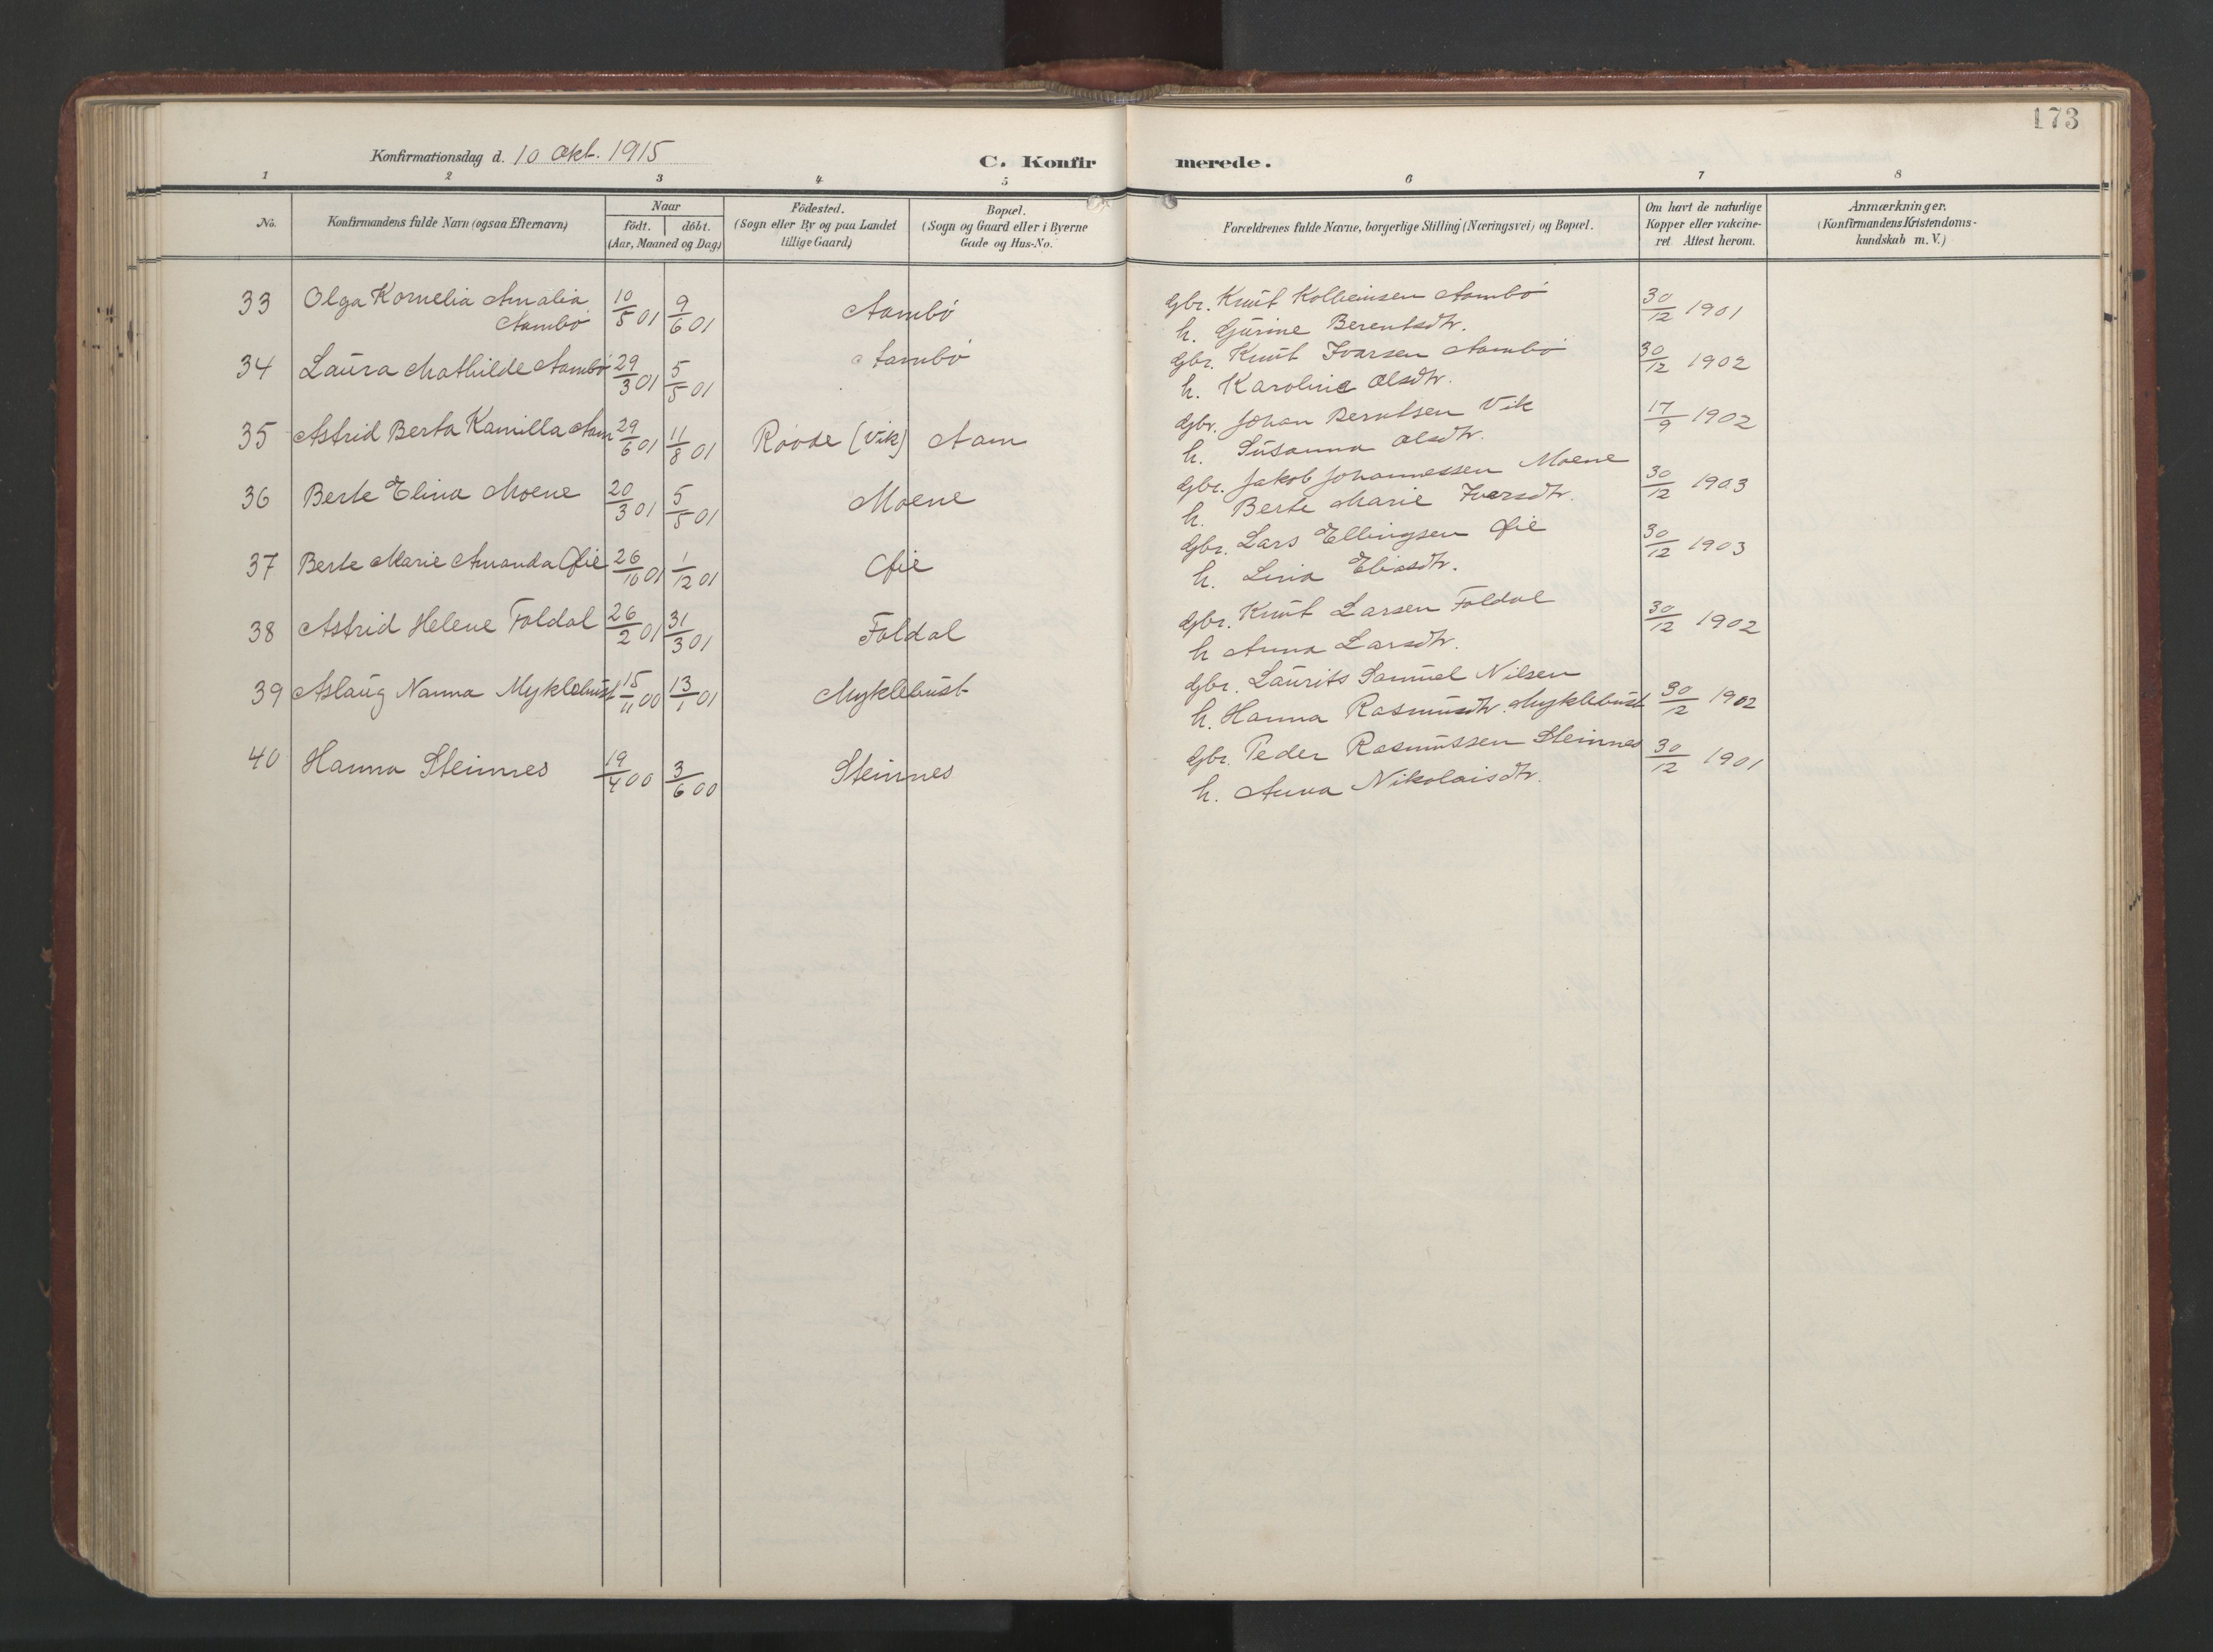 173
Konfirmationsdag d. 10 Okt. 1915
C. Konfirmerede.
1 2 3 4 5 6 7 8
No. Konfirmandens fulde Navn (ogsaa Efternavn) Naar födt. döbt. (Aar, Maaned og Dag) Födested. (Sogn eller By og paa Landet tillige Gaard) Bopæl. (Sogn og Gaard eller i Byerne Gade og Hus-No. Forældrenes fulde Navne, borgerlige Stilling (Næringsvei) og Bopæl. Om havt de naturlige Kopper eller vakcineret Attest herom. Anmærkninger. (Konfirmandens Kristendomskundskab m. V.)
33 Olga Kornelia Amalia 10/5 01 9/6 01 Aambö Gbr. Knut Kolbeinsen Aambö 30/12 1901
Aambö h. Gurine Berentsdtr.
34 Laura Mathilde Aambö 29/3 01 5/5 01 Aambö Gbr. Knut Ivarsen Aambö 30/12 1902
h. Karoline Olsdtr.
35 Astrid Berta Kamilla Aam 29/6 01 11/8 01 Rovde (Vik) Aam Gbr. Johan Berntsen Vik 17/9 1902
h. Susanna Olsdtr.
36 Berte Elina Moene 20/3 01 5/5 01 Moene Gbr. Jakob Johannessen Moene 30/12 1903
h. Berte Marie Ivarsdtr.
37 Berte Marie Amanda Öie 26/10 01 1/12 01 Öie Gbr. Lars Ellingsen Öie 30/12 1903
h. Lina Eliasdtr.
38 Astrid Helene Foldal 26/2 01 31/3 01 Foldal Gbr. Knut Larsen Foldal 30/12 1902
h Anna Larsdtr.
39 Aslaug Nanna Myklebust 15/11 00 13/1 01 Myklebust Gbr. Laurits Samuel Nilsen
h. Hanna Rasmusdtr. Myklebust 30/12 1902
40 Hanna Steinnes 19/4 00 3/6 00 Steinnes Gbr. Peder Rasmussen Steinnes 30/12 1901
h. Anna Nikolaisdtr.